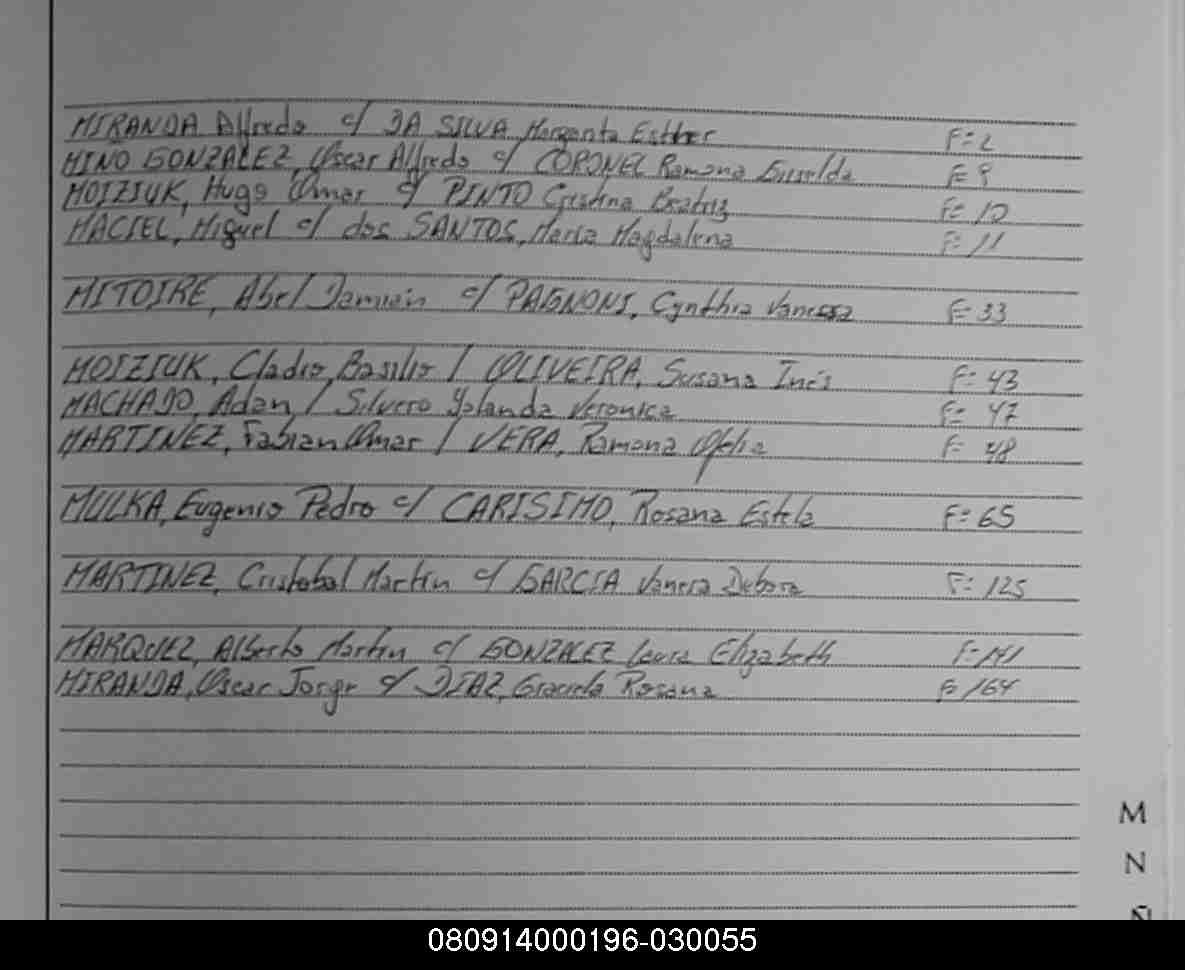 MIRANDA Alfredo c/ DA SILVA Margarita Esther F=2
MIÑO GONZALEZ, Oscar Alfredo c/ CORONEL Ramona Griselda F=9
MOIZIUK, Hugo Omar c/ PINTO Cristina Beatriz F=10
MACIEL, Miguel c/ dos SANTOS, Maria Magdalena F=11
MITOIRE, Abel Damian c/ PAGNONI, Cynthia Vanessa F=33
MOIZIUK, Cladio Basilio / OLIVEIRA, Susana Inés F=43
MACHADO, Adan / Silvero Yolanda Veronica F=47
MARTINEZ, Fabian Omar / VERA, Ramona Ofelia F=48
MULKA, Eugenio Pedro c/ CARISIMO, Rosana Estela F=65
MARTINEZ, Cristobal Martin c/ GARCIA Vanesa Debora F=125
MARQUEZ, Alberto Martin c/ GONZALEZ Laura Elizabeth F=141
MIRANDA, Oscar Jorge c/ DIAZ, Graciela Rosana F=164
M
N
Ñ
080914000196-030055